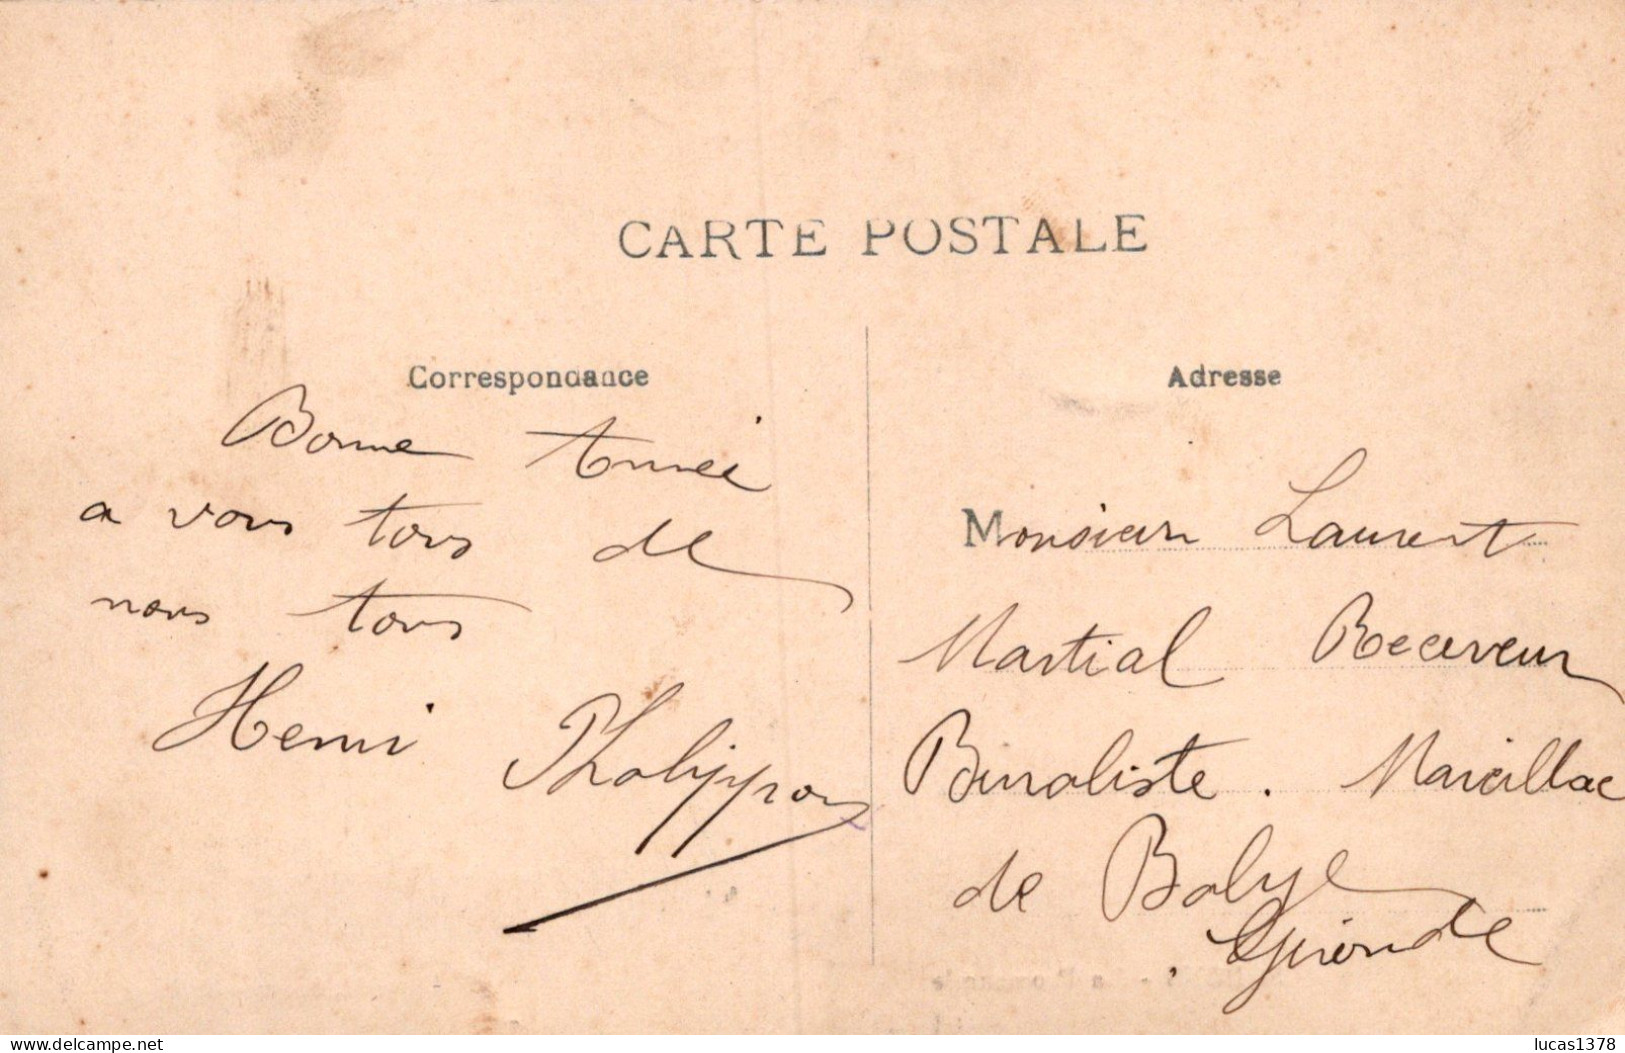 CARTE POSTALE
Correspondance
Bonne Année
a vous tous de
nous tous
Henri
Adresse
Monsieur Laurent
Martial Receveur
Buraliste. Marcillac
de Balyze
Gironde
www.delcampe.net
lucas1378